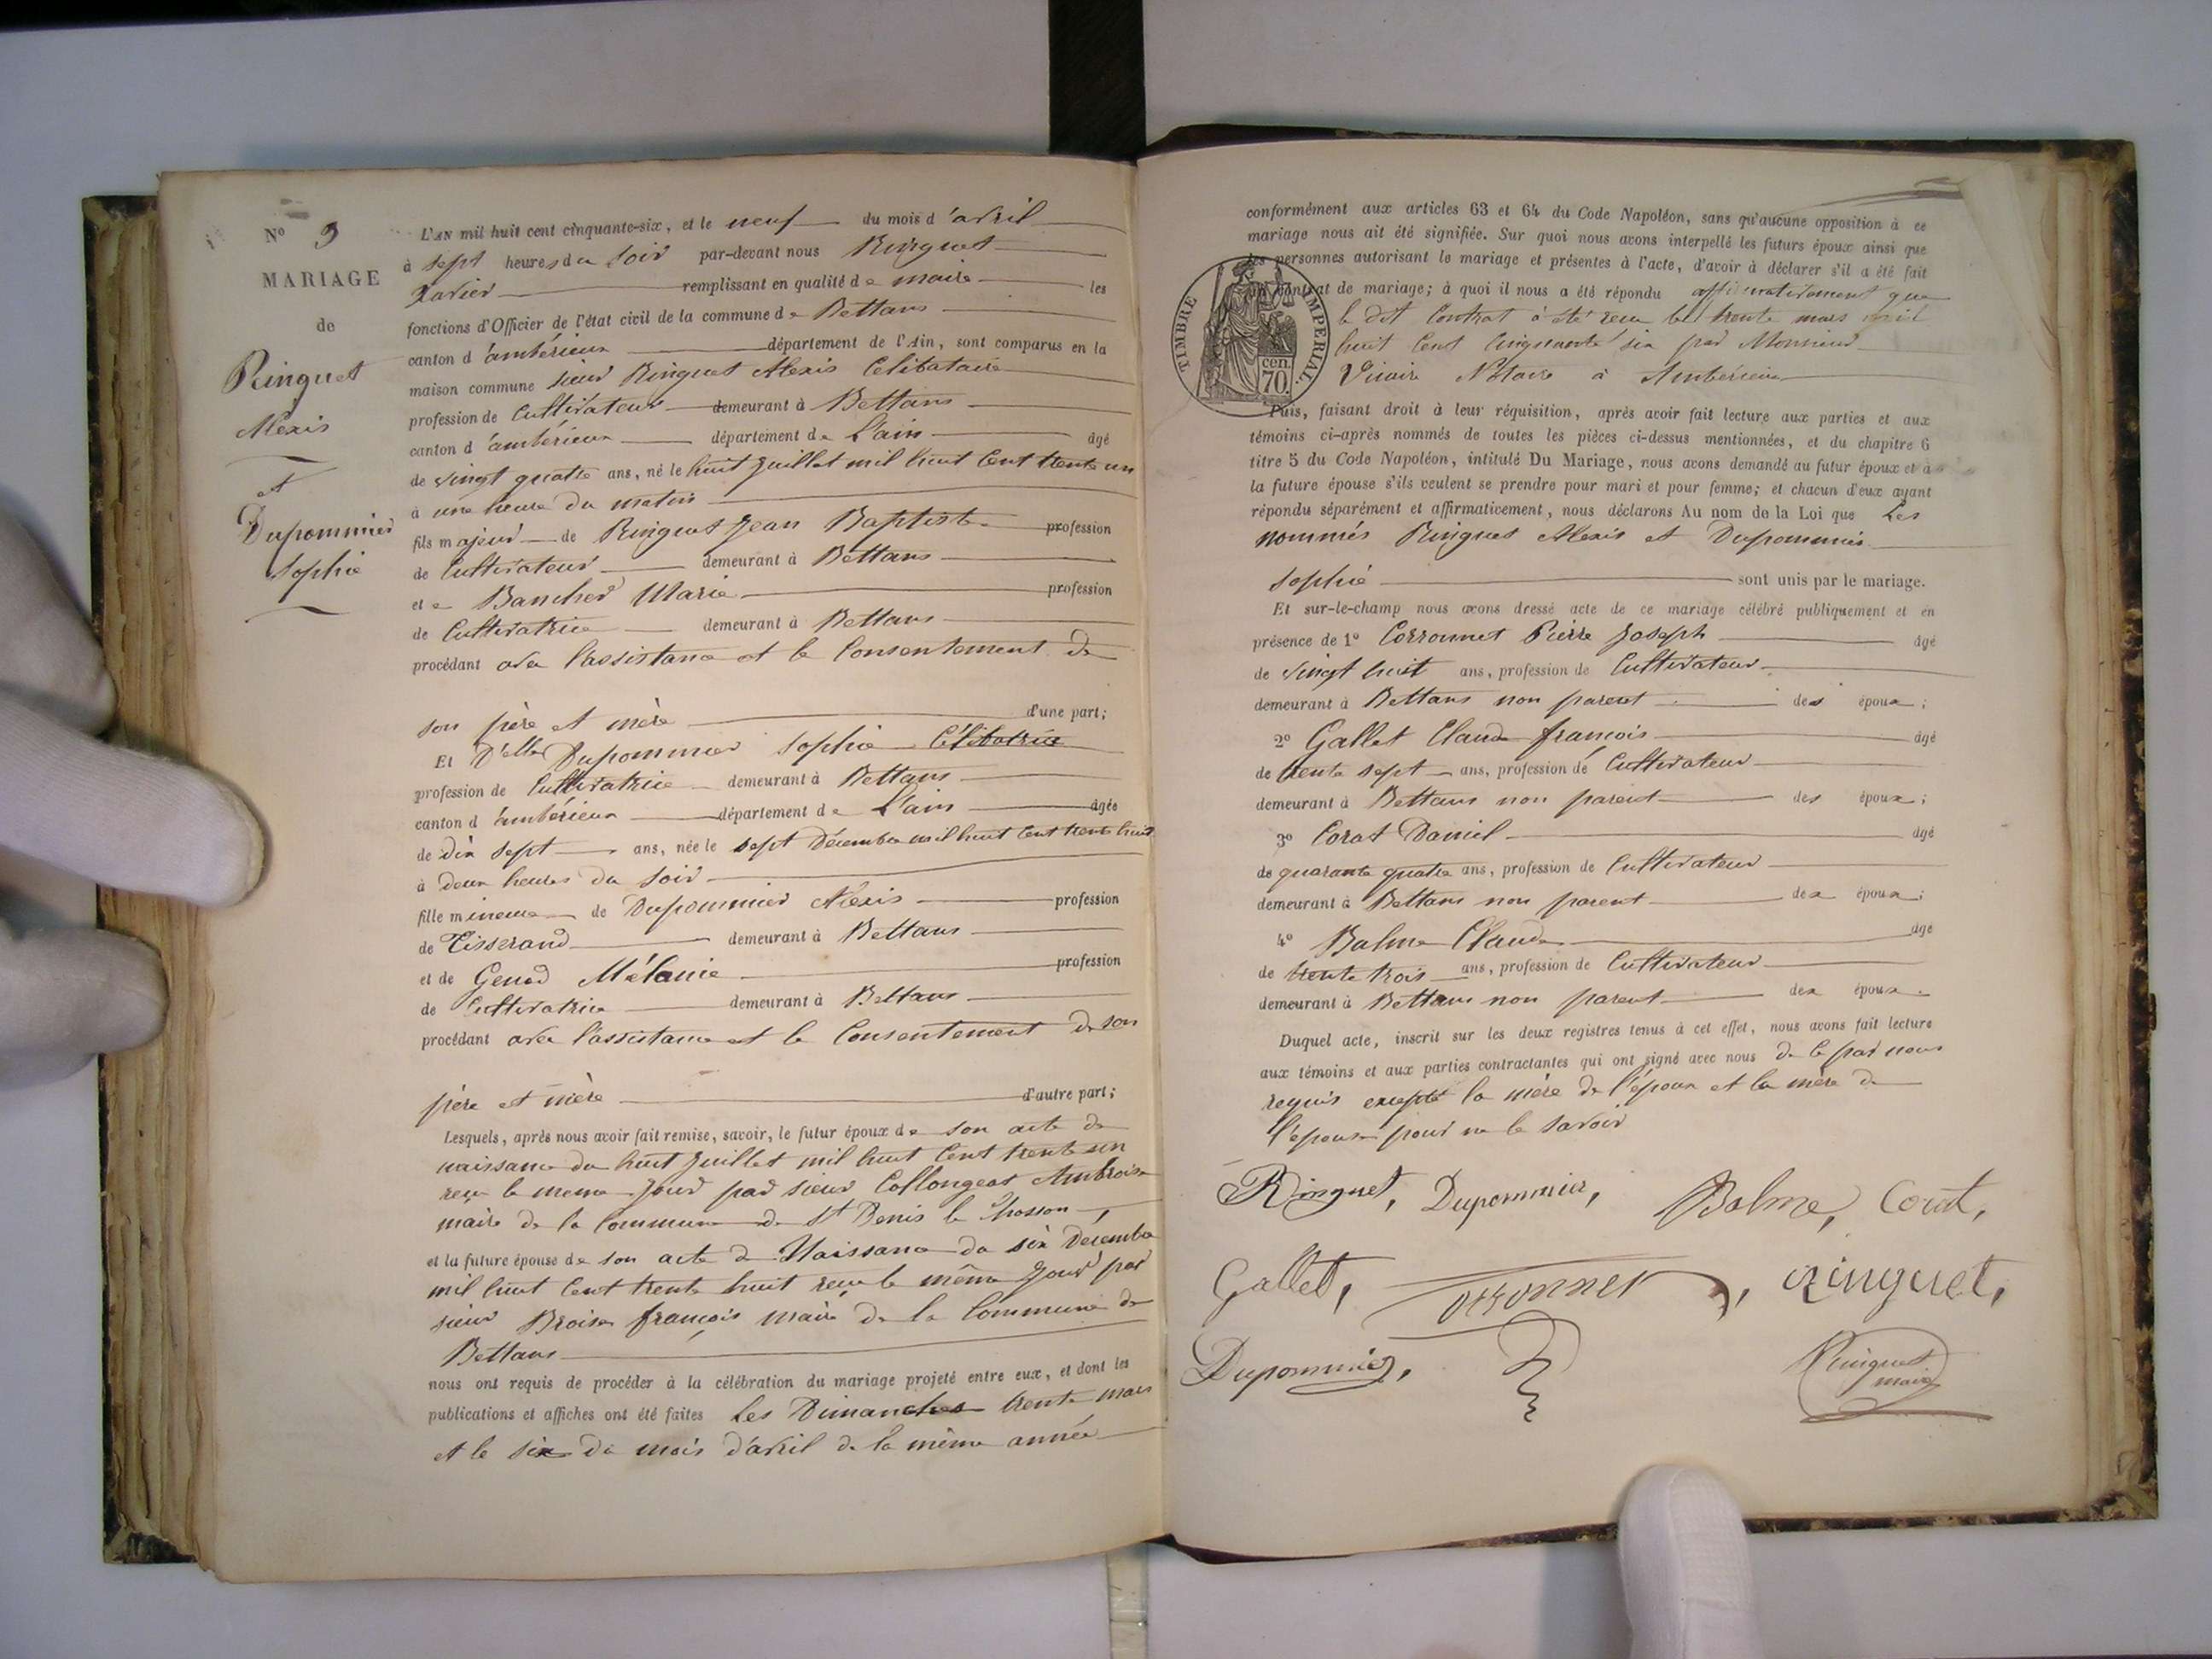 Nº 9
MARIAGE
de
Ringuet
Alexis
et
Dupommier
Sophie
L'AN mil huit cent cinquante-six, et le neuf du mois d'avril
à sept heures du soir par-devant nous Ringuet
Xavier remplissant en qualité de maire les
fonctions d'Officier de l'état civil de la commune de Bettans
canton d'ambérieux département de l'Ain, sont comparus en la
maison commune sieur Ringuet Alexis Célibataire
profession de Cultivateur demeurant à Bettans
canton d'ambérieux département de L'ain âgé
de vingt quatre ans, né le huit juillet mil huit cent trente un
à une heure du matin
fils majeur de Ringuet Jean Baptiste profession
de Cultivateur demeurant à Bettans
et de Bancher Marie profession
de Cultivatrice demeurant à Bettans
procédant avec l'assistance et le Consentement de
son père et mère d'une part;
Et D'elle Dupommier Sophie Célibatrice
profession de Cultivatrice demeurant à Bettans
canton d'ambérieux département de L'ain âgée
de dix sept ans, née le sept Décembre mil huit cent trente huit
à deux heures du soir
fille mineure de Dupommier Alexis profession
de Tisserand demeurant à Bettans
et de Genod Mélanie profession
de Cultivatrice demeurant à Bettans
procédant avec l'assistance et le Consentement de son
père et mère d'autre part;
Lesquels, après nous avoir fait remise, savoir, le futur époux de son acte de
naissance du huit juillet mil huit cent trente un
reçu le meme jour par sieur Collongeat Ambroise
maire de la Commune de St Denis le Chosson,
et la future épouse de son acte de Naissance du six Décembre
mil huit cent trente huit reçu le même jour par
sieur Broise françois maire de la Commune de
Bettans
nous ont requis de procéder à la célébration du mariage projeté entre eux, et dont les
publications et affiches ont été faites les Dimanches trente mars
et le six du mois d'avril de la même année
conformément aux articles 63 et 64 du Code Napoléon, sans qu'aucune opposition à ce
mariage nous ait été signifiée. Sur quoi nous avons interpellé les futurs époux ainsi que
les personnes autorisant le mariage et présentes à l'acte, d'avoir à déclarer s'il a été fait
un contrat de mariage; à quoi il nous a été répondu affirmativement que
le dit Contrat à été reçu le trente mars mil
huit Cent Cinquante six par Monsieur
Notaire à Ambérieux
TIMBRE IMPERIAL.
cen.
70.
Puis, faisant droit à leur réquisition, après avoir fait lecture aux parties et aux
témoins ci-après nommés de toutes les pièces ci-dessus mentionnées, et du chapitre 6
titre 5 du Code Napoléon, intitulé Du Mariage, nous avons demandé au futur époux et à
la future épouse s'ils veulent se prendre pour mari et pour femme; et chacun d'eux ayant
répondu séparément et affirmativement, nous déclarons Au nom de la Loi que Les
nommés Ringuet Alexis et Dupommier
Sophie sont unis par le mariage.
Et sur-le-champ nous avons dressé acte de ce mariage célébré publiquement et en
présence de 1º Corronnet Pierre Joseph âgé
de vingt huit ans, profession de Cultivateur
demeurant à Bettans non parent des époux;
2º Gallet Claude françois âgé
de trente sept ans, profession de Cultivateur
demeurant à Bettans non parent des époux;
3º Corat Daniel âgé
de quarante quatre ans, profession de Cultivateur
demeurant à Bettans non parent des époux;
4º Balme Claude âgé
de trente trois ans, profession de Cultivateur
demeurant à Bettans non parent des époux.
Duquel acte, inscrit sur les deux registres tenus à cet effet, nous avons fait lecture
aux témoins et aux parties contractantes qui ont signé avec nous de ce par nous
requis excepté la mère de l'époux et la mère de
l'épouse pour ne le savoir
Ringuet, Dupommier, Balme, Corat,
Gallet, Coronnet, Ringuet,
Dupommier,
Ringuet
maire